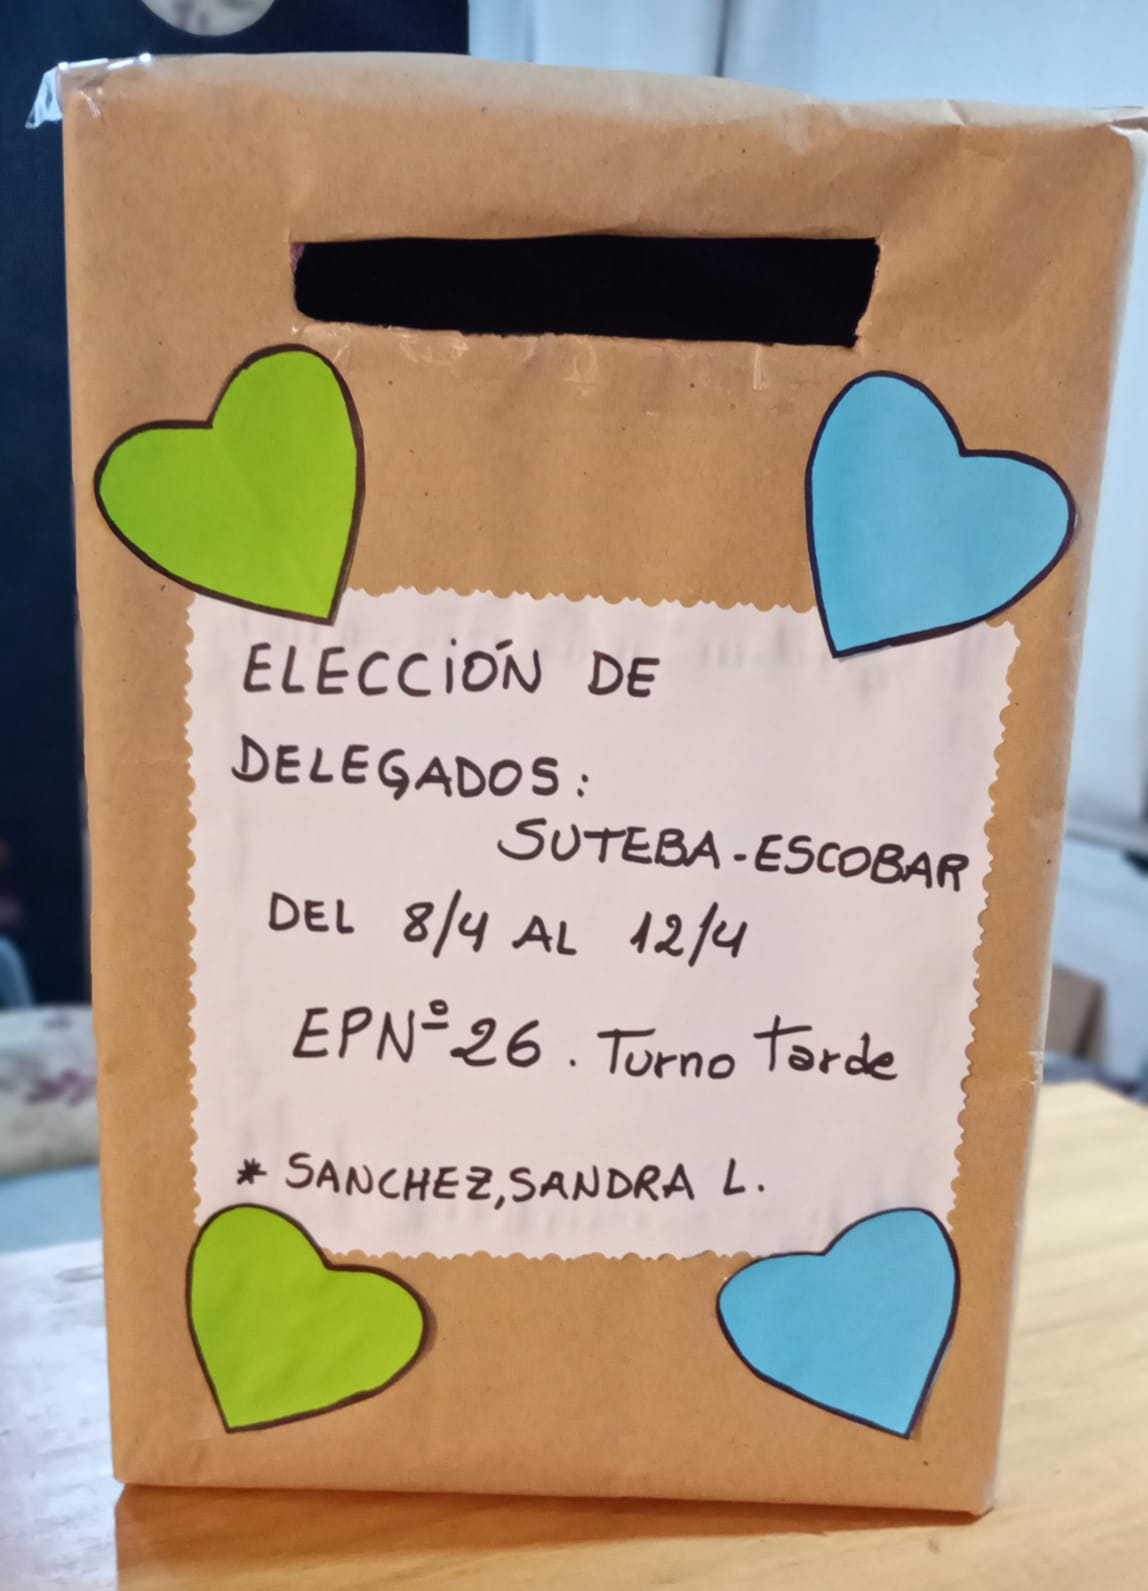 ELECCIÓN DE
DELEGADOS:
SUTEBA-ESCOBAR
DEL 8/4 AL 12/4
EPNº26. Turno Tarde
* SANCHEZ, SANDRA L.